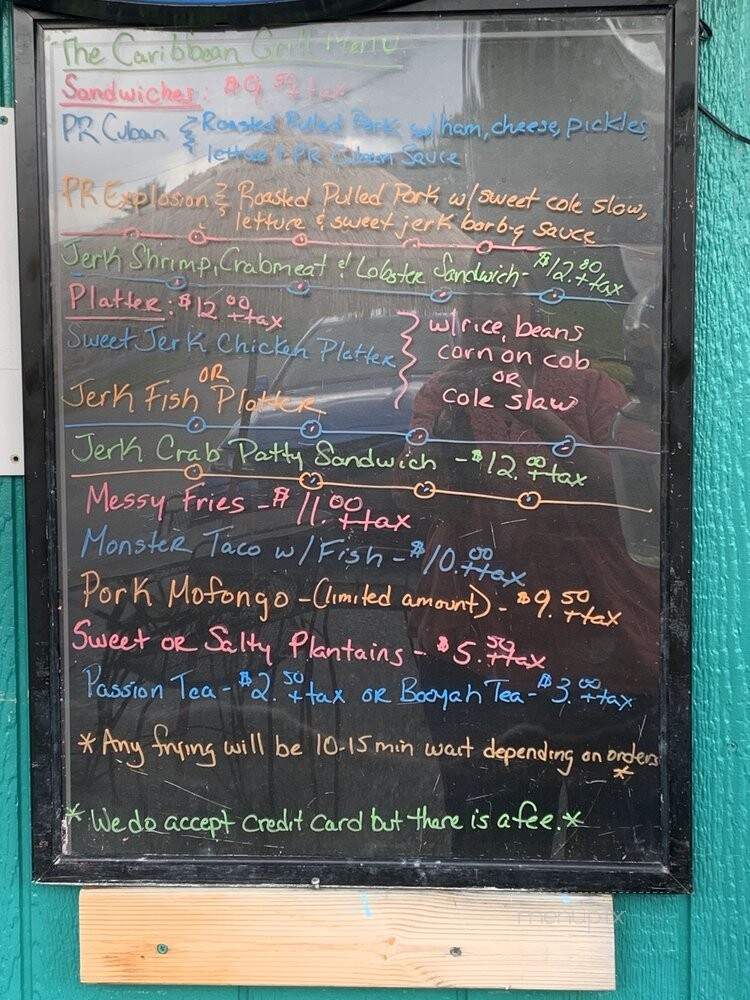 The Caribbean Grill Menu
Sandwiches: $9.50 +tax
PR Cuban } Roasted Pulled Pork w/ ham, cheese, pickles,
lettuce & PR Cuban Sauce
PR Explosion } Roasted Pulled Pork w/sweet cole slow,
lettuce & sweet jerk barbq sauce
Jerk Shrimp, Crabmeat & Lobster Sandwich - $12.00 +tax
Platter: $12.00 +tax
Sweet Jerk Chicken Platter
OR
Jerk Fish Platter
w/rice, beans
corn on cob
OR
cole slaw
Jerk Crab Patty Sandwich - $12.00 +tax
Messy Fries - $11.00 +tax
Monster Taco w/Fish - $10.00 +tax
Pork Mofongo - (limited amount) - $9.50 +tax
Sweet or Salty Plantains - $5.50 +tax
Passion Tea - $2.50 +tax or Booyah Tea - $3.00 +tax
*Any frying will be 10-15 min wait depending on orders*
*We do accept credit card but there is a fee.*
menupix